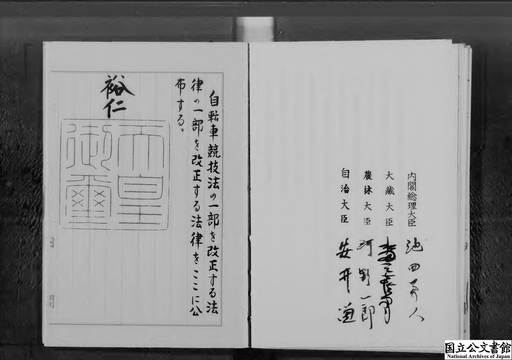 自転車競技法の一部を改正する法
律の一部を改正する法律をここに公
布する。
裕仁
天皇
御璽
内閣総理大臣 池田勇人
大蔵大臣
農林大臣 河野一郎
自治大臣 安井謙
国立公文書館
National Archives of Japan